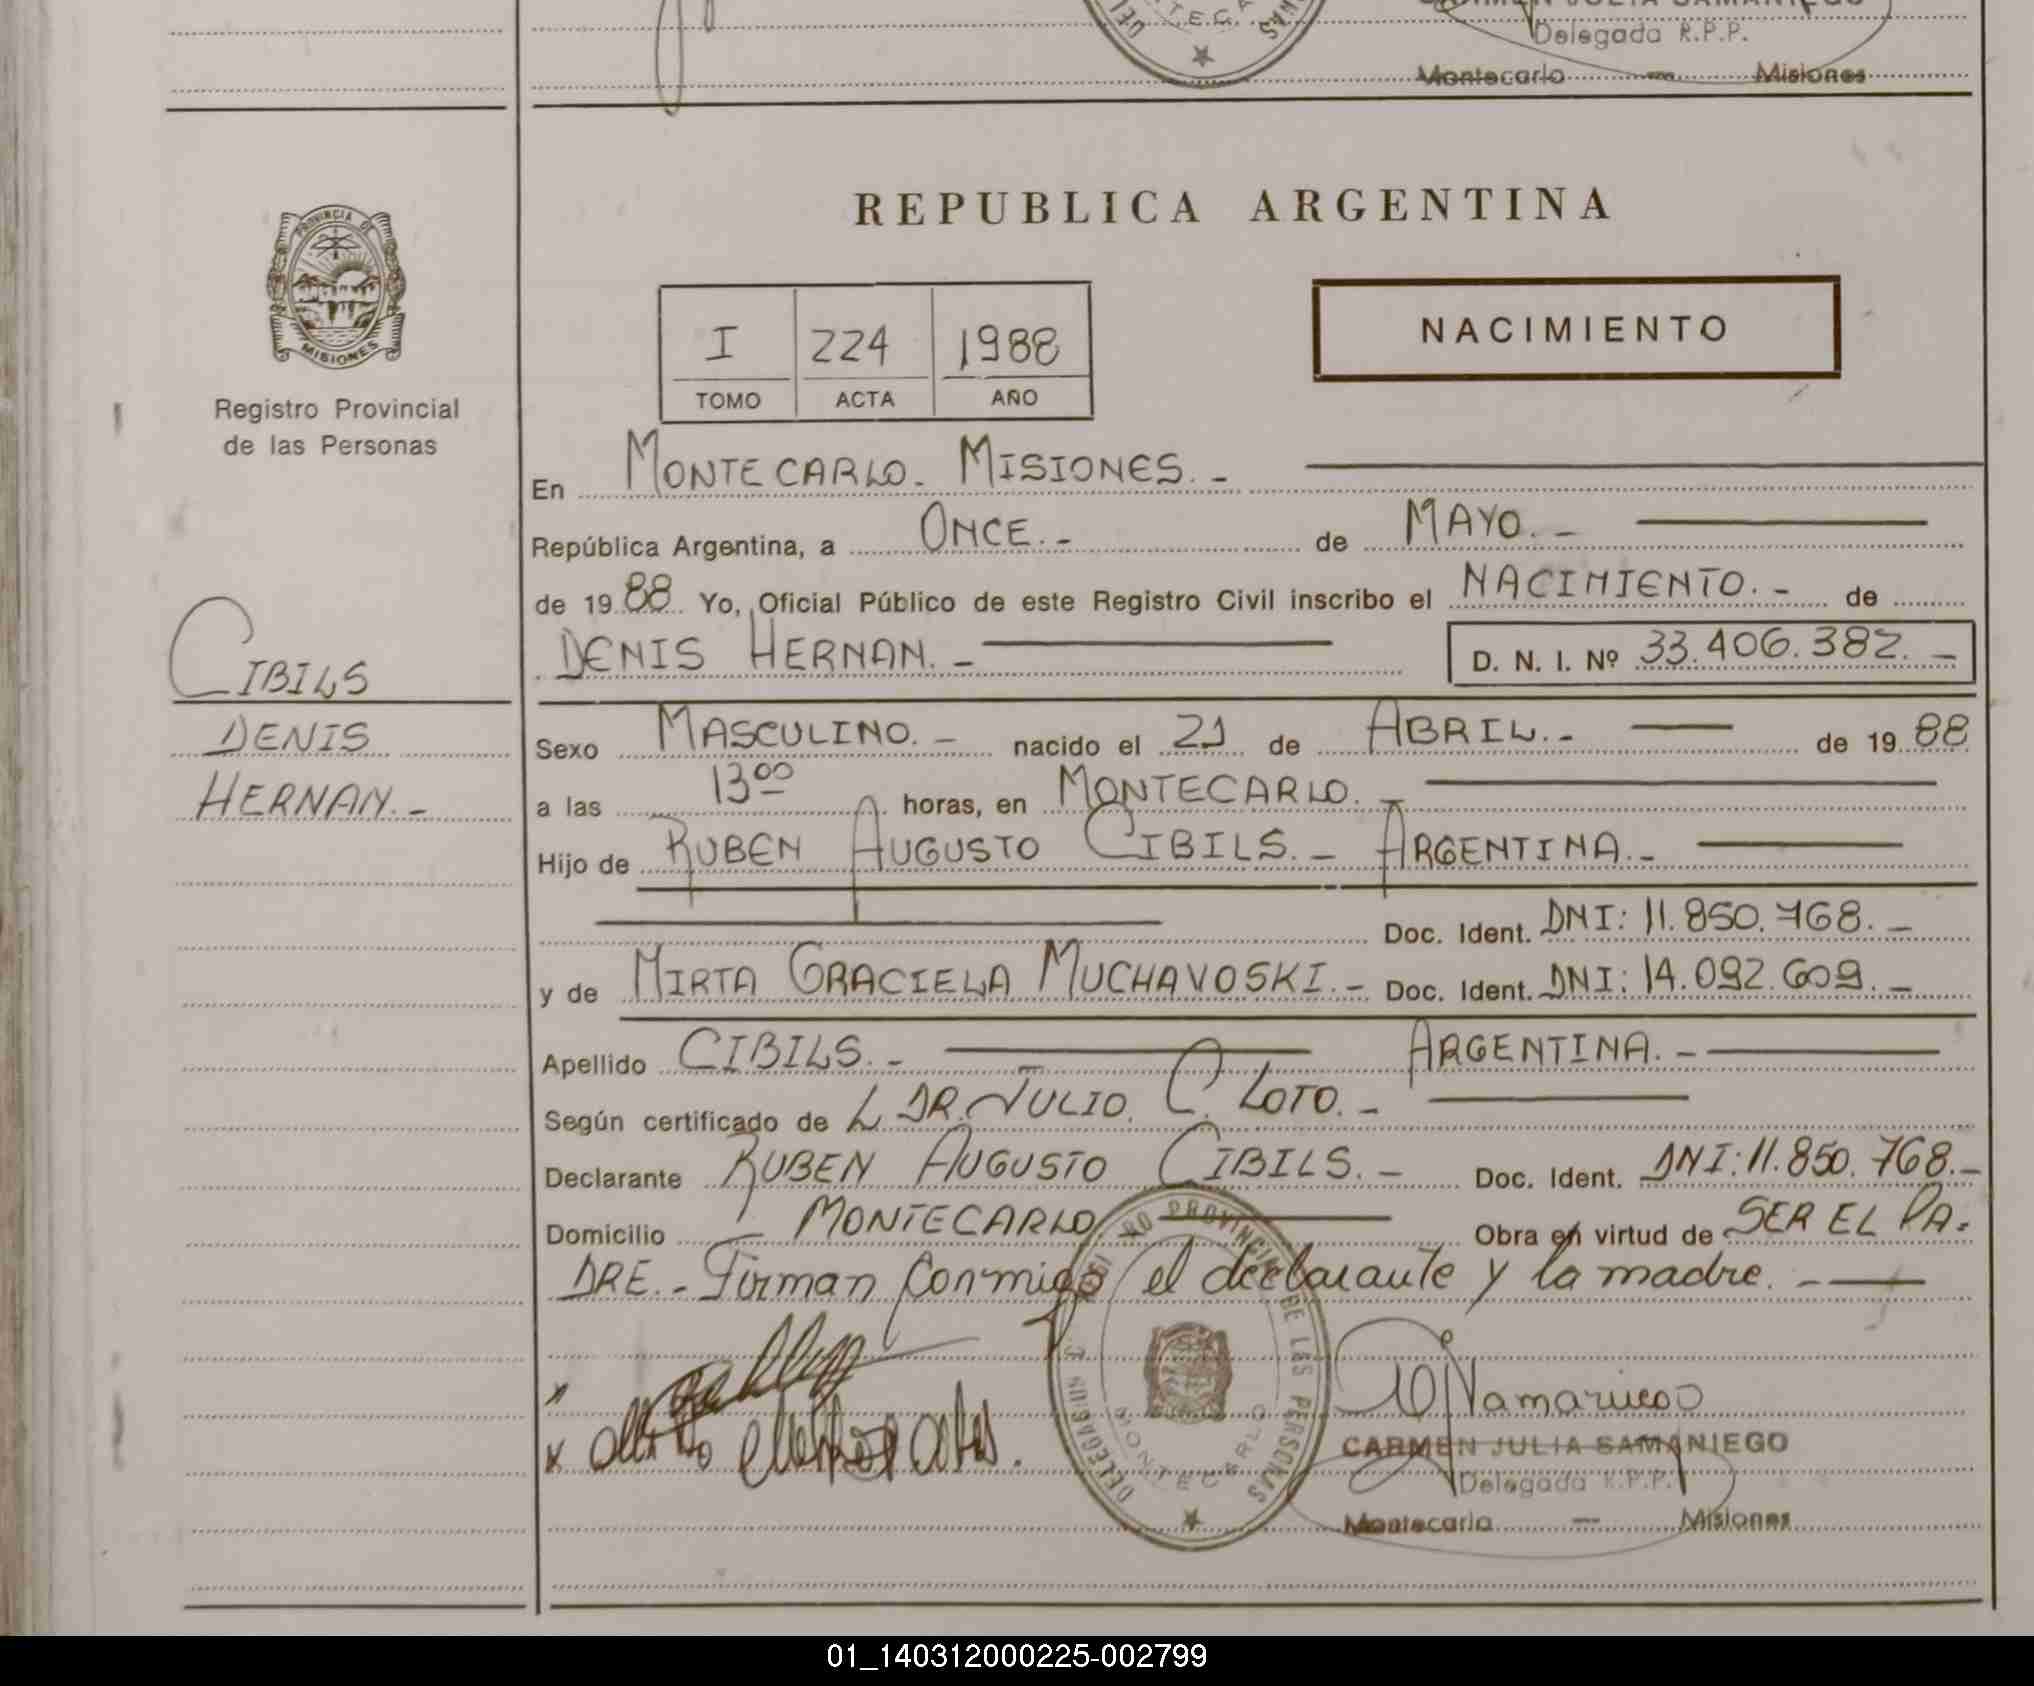 CARMEN JULIA SAMANIEGO
Delegada R.P.P.
Montecarlo — Misiones
PROVINCIA DE
MISIONES
Registro Provincial
de las Personas
REPUBLICA ARGENTINA
I 224 1988
TOMO ACTA AÑO
NACIMIENTO
En MONTECARLO. MISIONES. -
República Argentina, a ONCE. - de MAYO. -
de 1988 Yo, Oficial Público de este Registro Civil inscribo el NACIMIENTO. - de
DENIS HERNAN. - D. N. I. Nº 33.406.382. -
CIBILS
DENIS
HERNAN. -
Sexo MASCULINO. - nacido el 21 de ABRIL. - de 1988
a las 13 00 horas, en MONTECARLO. -
Hijo de RUBEN AUGUSTO CIBILS. - ARGENTINA. -
Doc. Ident. DNI: 11.850.768. -
y de MIRTA GRACIELA MUCHAVOSKI. - Doc. Ident. DNI: 14.092.609. -
Apellido CIBILS. - ARGENTINA. -
Según certificado de L DR. JULIO. C. LOTO. -
Declarante RUBEN AUGUSTO CIBILS. - Doc. Ident. DNI: 11.850.768. -
Domicilio - MONTECARLO Obra en virtud de SER EL PA=
DRE. - Firman conmigo el declarante y la madre. -
DELEGACION REGISTRO PROVINCIAL DE LAS PERSONAS
MONTECARLO
CARMEN JULIA SAMANIEGO
Delegada R.P.P.
Montecarlo — Misiones
01_140312000225-002799